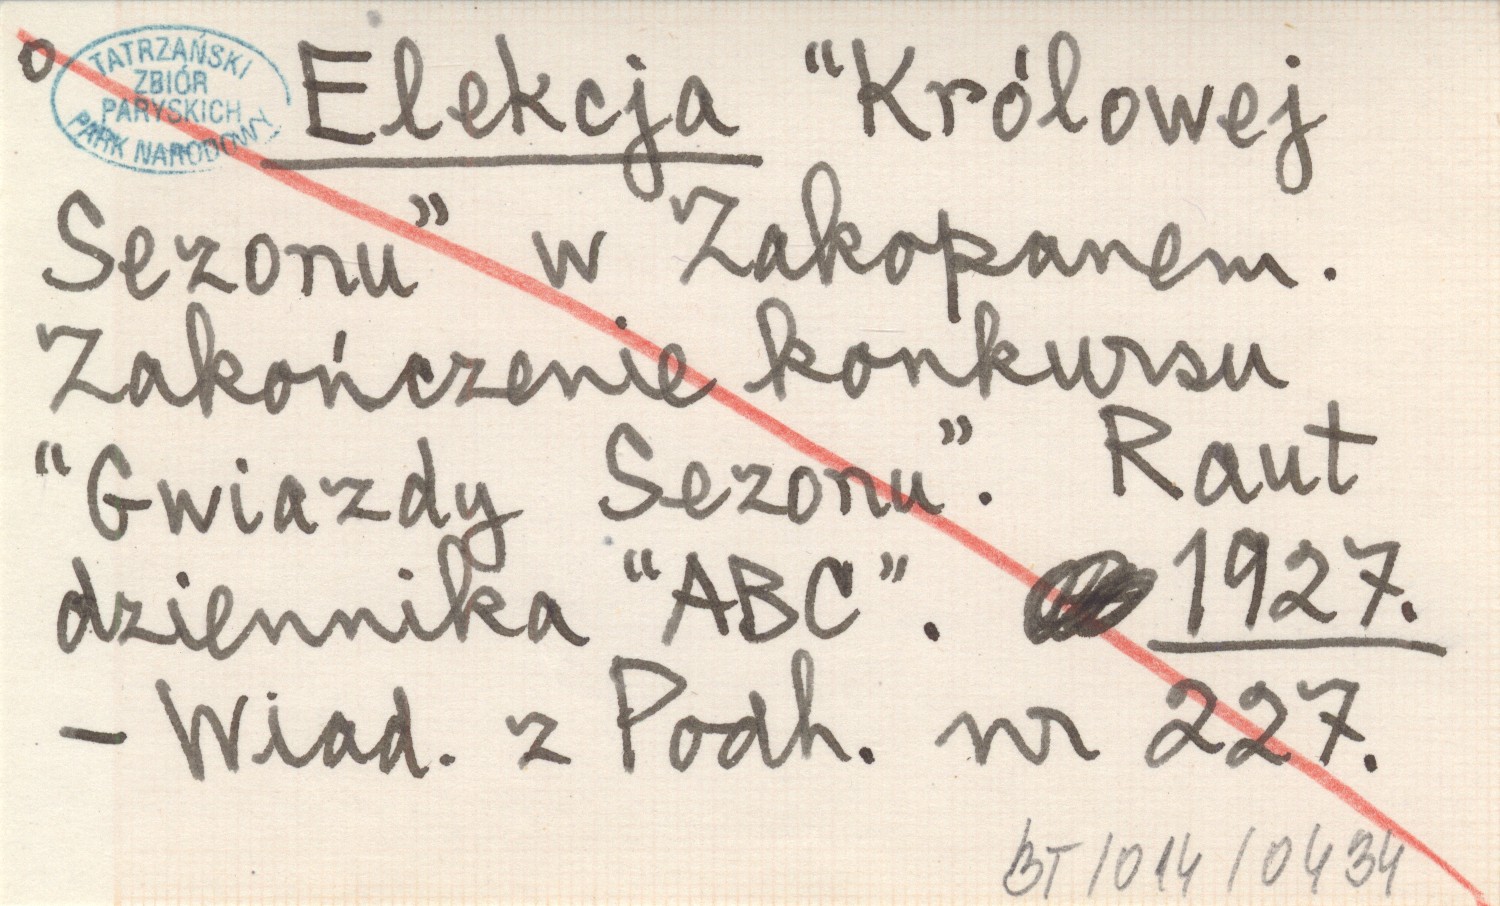 o
TATRZAŃSKI
ZBIÓR
PARYSKICH
PARK NARODOWY
Elekcja "Królowej
Sezonu" w Zakopanem.
Zakończenie konkursu
"Gwiazdy Sezonu". Raut
dziennika "ABC". 1927.
- Wiad. z Podh. nr 227.
BT/014/0434